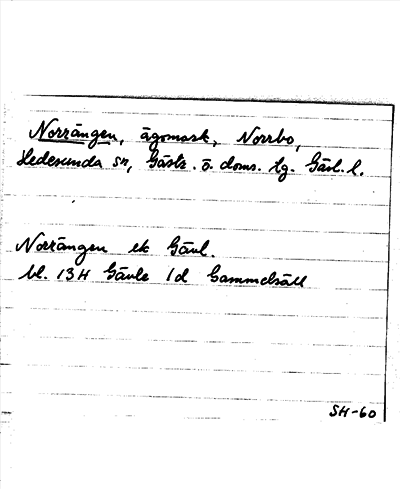 Norrängen, ägomark, Norrbo,
Hedesunda sn, Gästr. ö. doms. tg. Gävl. l.
Norrängen ek Gävl.
bl. 13H Gävle 1d Gammelsäll
SH-60